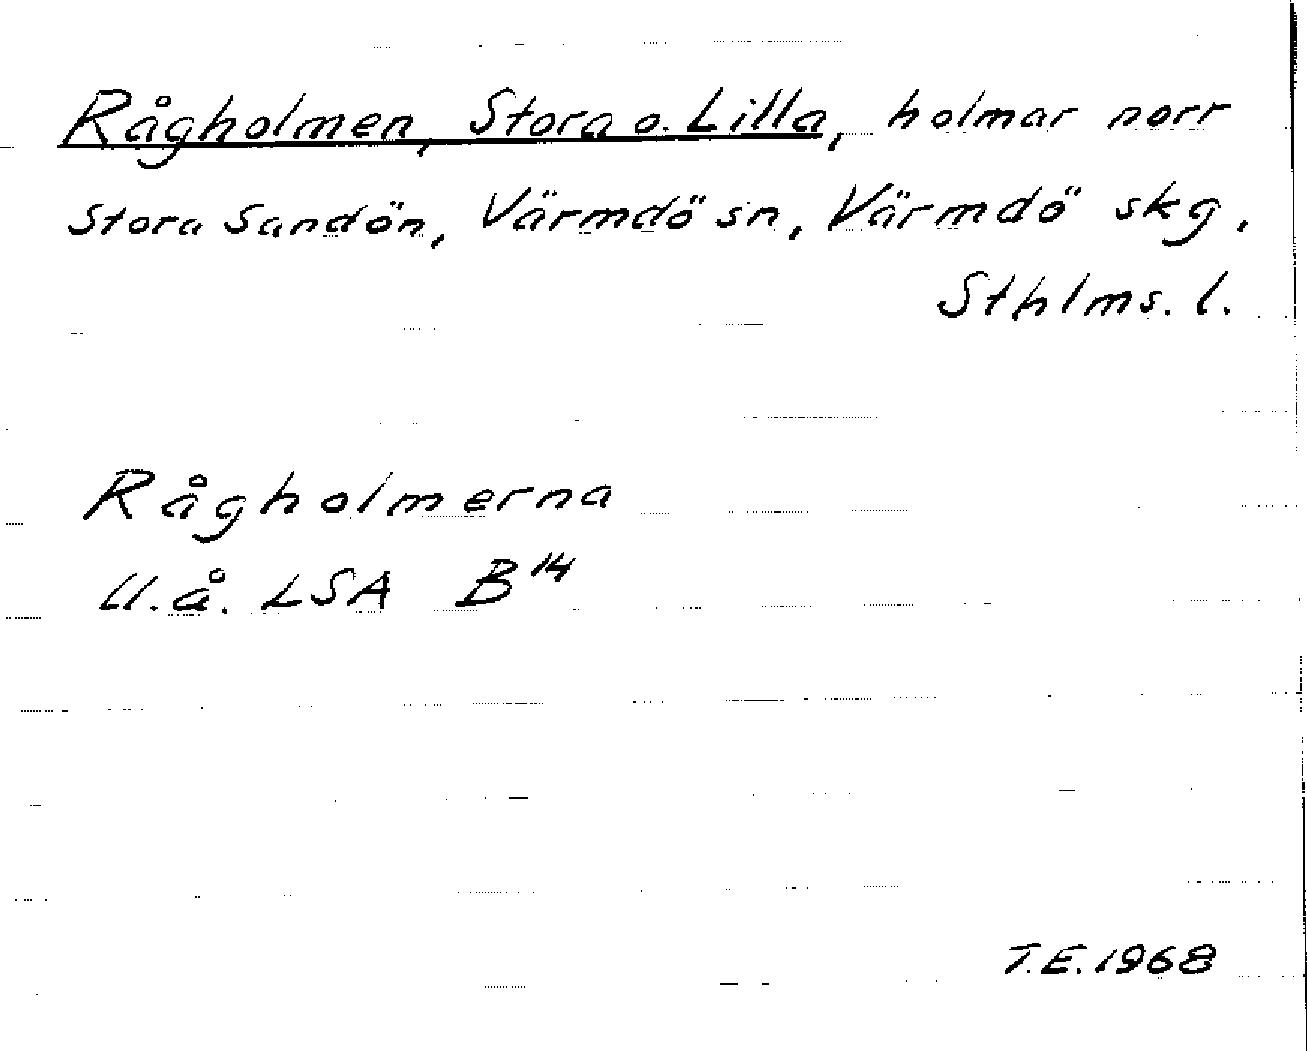 Rågholmen, Stora o. Lilla, holmar norr
Stora Sandön, Värmdö sn, Värmdö skg,
Sthlms. l.
Rågholmerna
U.å. LSA B14
T.E. 1968